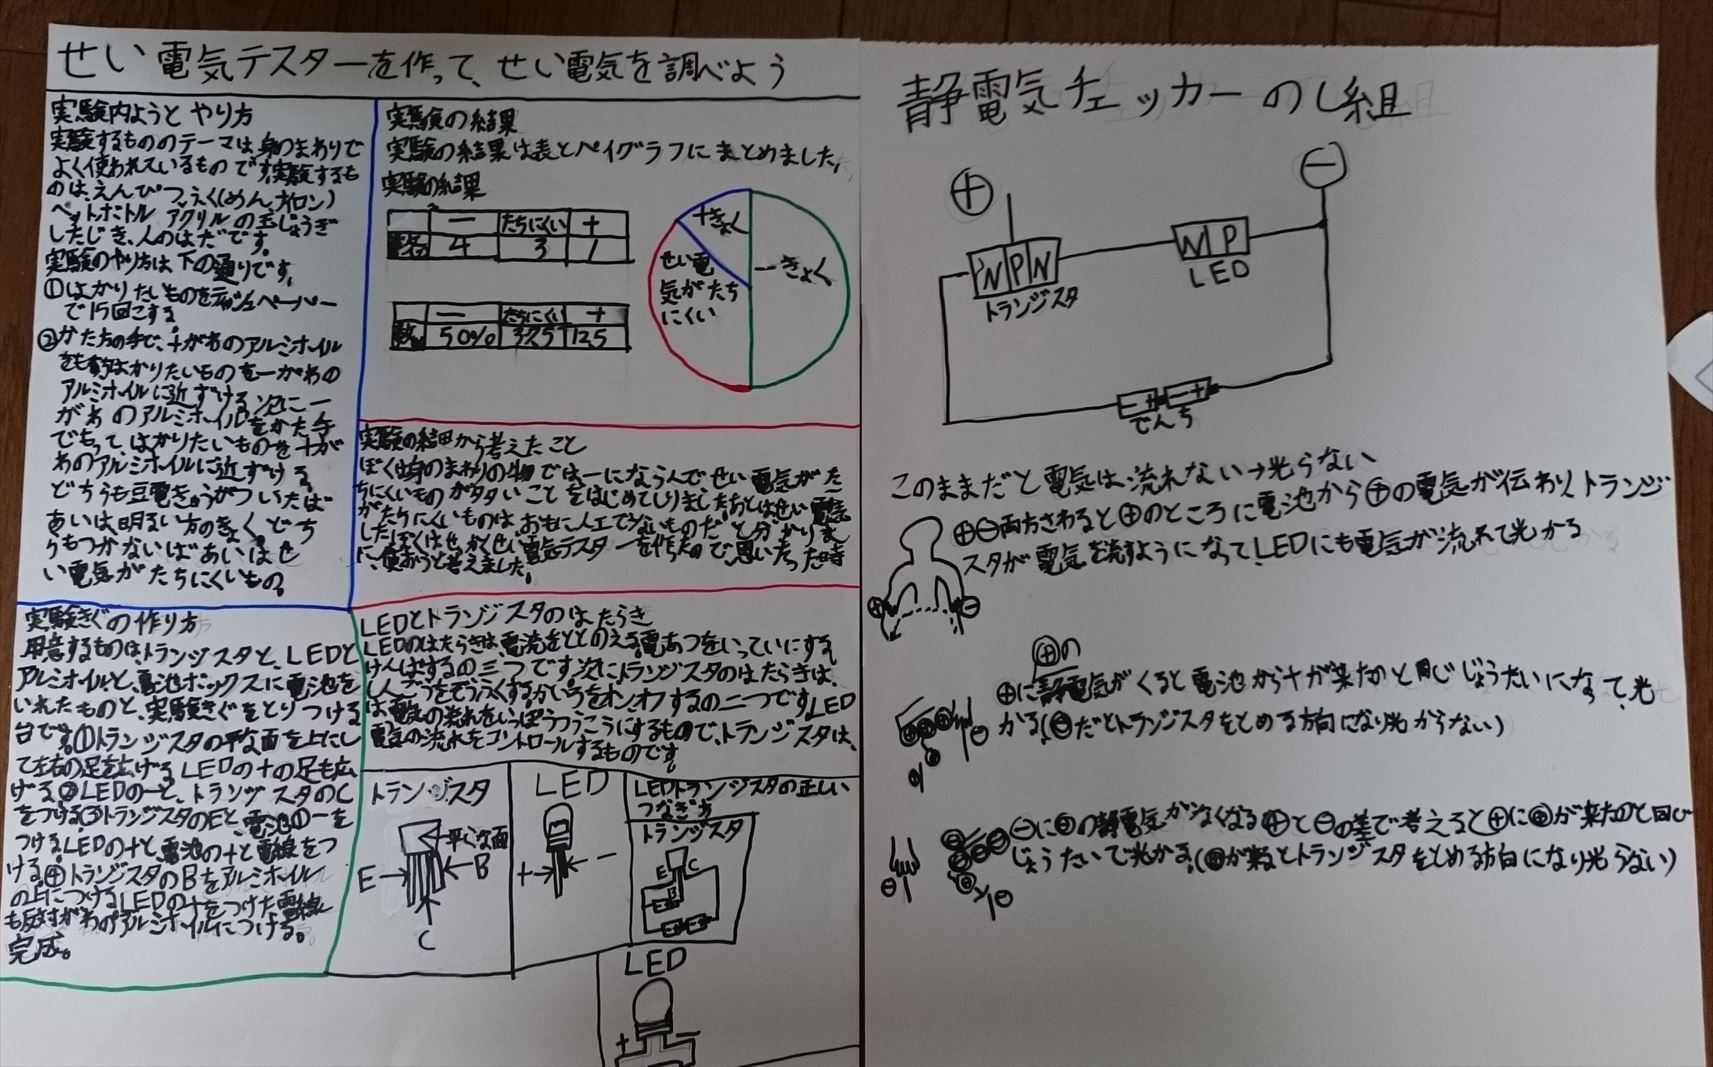 せい電気テスターを作って、せい電気を調べよう
実験内ようとやり方
実験するもののテーマは、身のまわりで
よく使われているものです。実験するも
のは、えんぴつ、ふく(めん、ナイロン)
ペットボトル アクリルの玉じょうぎ
したじき、人のはだです。
実験のやり方は下の通りです。
①はかりたいものをティッシュペーパー
で15回こする
②かた方の手で、+がわのアルミホイル
をも はかりたいものを一がわの
アルミホイルに近ずける 次に一
がわのアルミホイルをかた手
でもって、はかりたいものを十が
わのアルミホイルに近ずける。
どちらも豆電きゅうがついたば
あいは明るい方のきょく、どち
らもつかないばあいはせ
い電気がたちにくいもの。
実験の結果
実験の結果は表とペイグラフにまとめました。
実験の結果
ー たちにくい +
4 3 1
ー たちにくい +
50% 37.5 12.5
+きょく
ーきょく
せい電
気がたち
にくい
実験の結果から考えたこと
ぼくは身のまわりの物では一にならんでせい電気がた
ちにくいものが多いことをはじめてしりました
がたちにくいものは、おもに人工でないものだと分かりま
した ぼくはせっかくせい電気テスターを作たので、思いたった時
に、使おうと考えました。
実験きぐの作り方
用意するものは、トランジスタと、LEDと
アルミホイルと、電池ボックスに電池を
いれたものと、実験きぐをとりつける
台です。①トランジスタの平な面を上にし
て左右の足を広げる LEDの+の足も広
げる ②LEDの一と、トランジスタのC
をつける ③トランジスタのEと、電池の一を
つける LEDの+と、電池の+と電線をつ
ける ④トランジスタのBをアルミホイル
の上につける LEDの+をつけた電線
も反対がわのアルミホイルにつける。
完成。
LEDとトランジスタのはたらき
LEDのはたらきは、電流をととのえる 電あつをいっていにする
けんぱするの三つです 次にトランジスタのはたらきは、
をぞうふくするか いろをオンオフするの二つです LED
は、電気の流れをいっぽうつうこうにするもので、トランジスタは、
電気の流れをコントロールするものです。
トランジスタ
平な面
E
B
C
LED
+
ー
LEDトランジスタの正しい
つなぎ方
トランジスタ
E
C
B
LED
+
ー
静電気チェッカーのし組
+
ー
N P N
トランジスタ
N P
LED
ー + ー +
でんち
このままだと電気は流れない→光らない
⊕⊖両方さわると⊕のところに電池から⊕の電気が伝わりトランジ
スタが電気を流すようになってLEDにも電気が流れて光かる
⊕
⊖
⊕の
⊕に静電気がくると電池から+が来たのと同じじょうたいになって、光
かる(⊖だとトランジスタをとめる方向になり光からない)
⊖に⊖の静電気がなくなる ⊕と⊖の差で考えると⊕に⊕が来たのと同じ
じょうたいで光かる。(⊕が来るとトランジスタをとめる方向になり光らない)